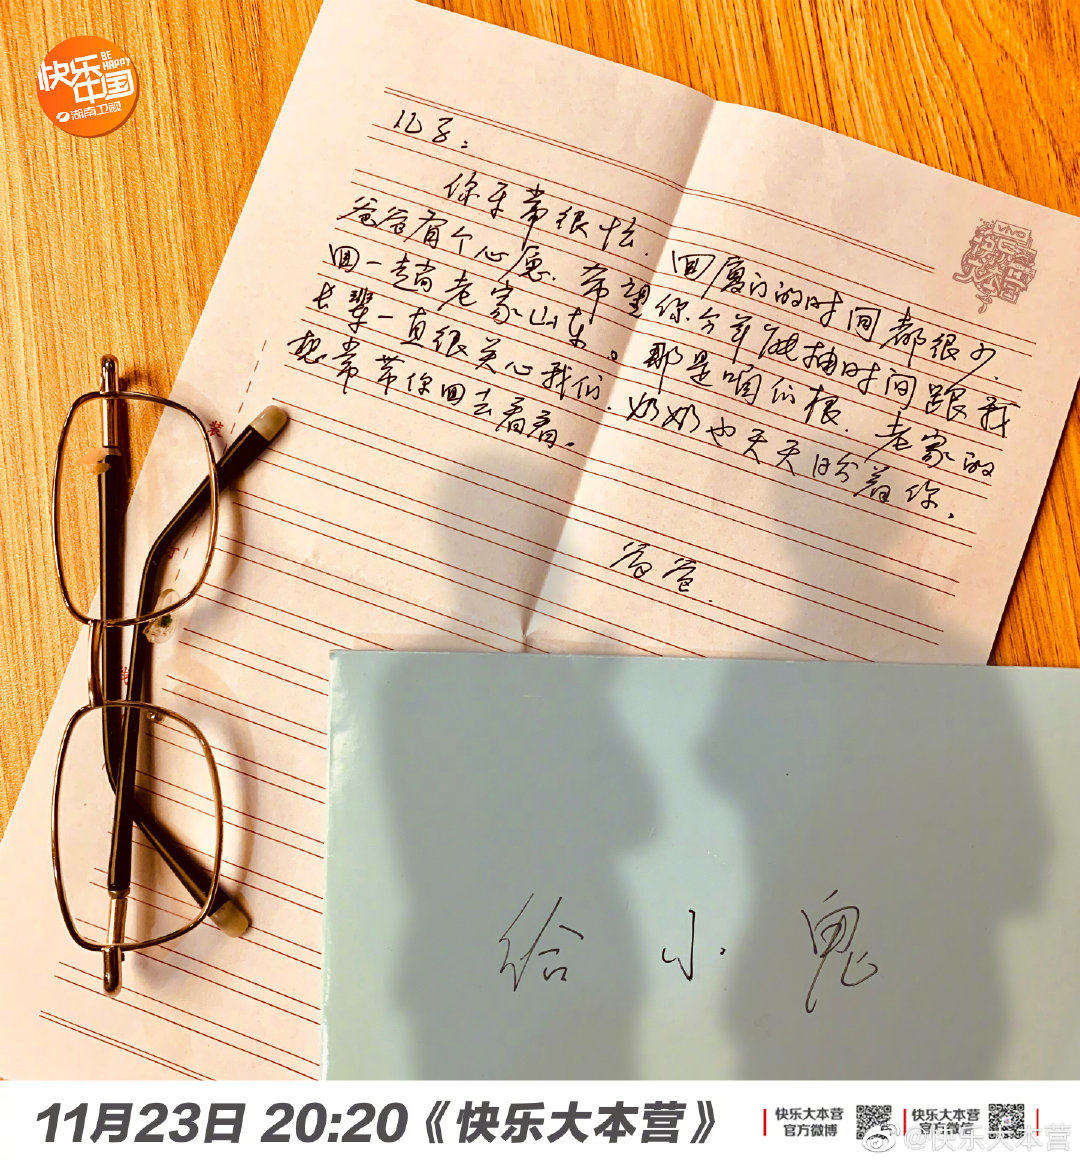 快乐
BE HAPPY
中国
湖南卫视
vivo
儿子:
你平常很忙.回厦门的时间都很少.
爸爸有个心愿.希望你今年能抽时间跟我
回一趟老家山东。那是咱们根.老家的
长辈一直很关心我们.奶奶也天天盼着你。
想常带你回去看看。
爸爸.
给小鬼
11月23日 20:20《快乐大本营》
快乐大本营
官方微博
快乐大本营
官方微信
@快乐大本营